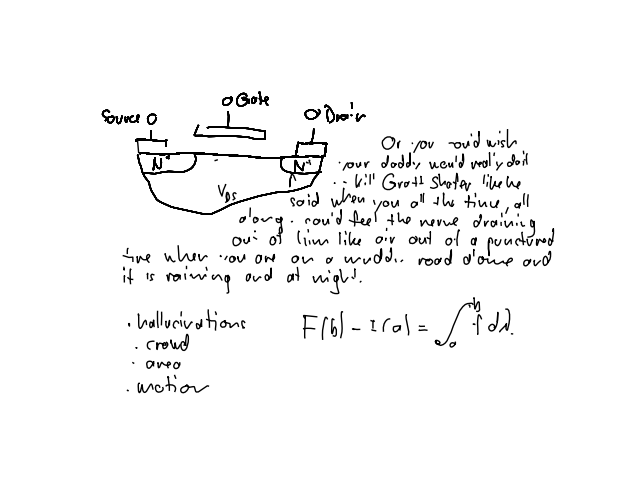 Gate
Source
Drain
N+
N+
VDS
Or you could wish
your daddy would really do it
kill Grat Shafer like he
said when you all the time, all
along. could feel the nerve draining
out of him like air out of a punctured
tire when you are on a muddy road alone and
it is raining and at night.
F(b) - F(a) = ∫_a^b f dλ.
· hallucinations
· crowd
· area
· motion